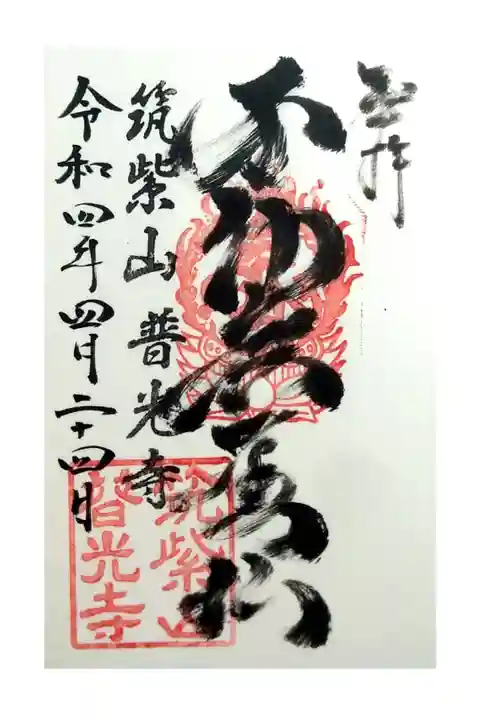 奉拝
不動
筑紫山 普光寺
令和四年四月二十四日
筑紫山
普光寺